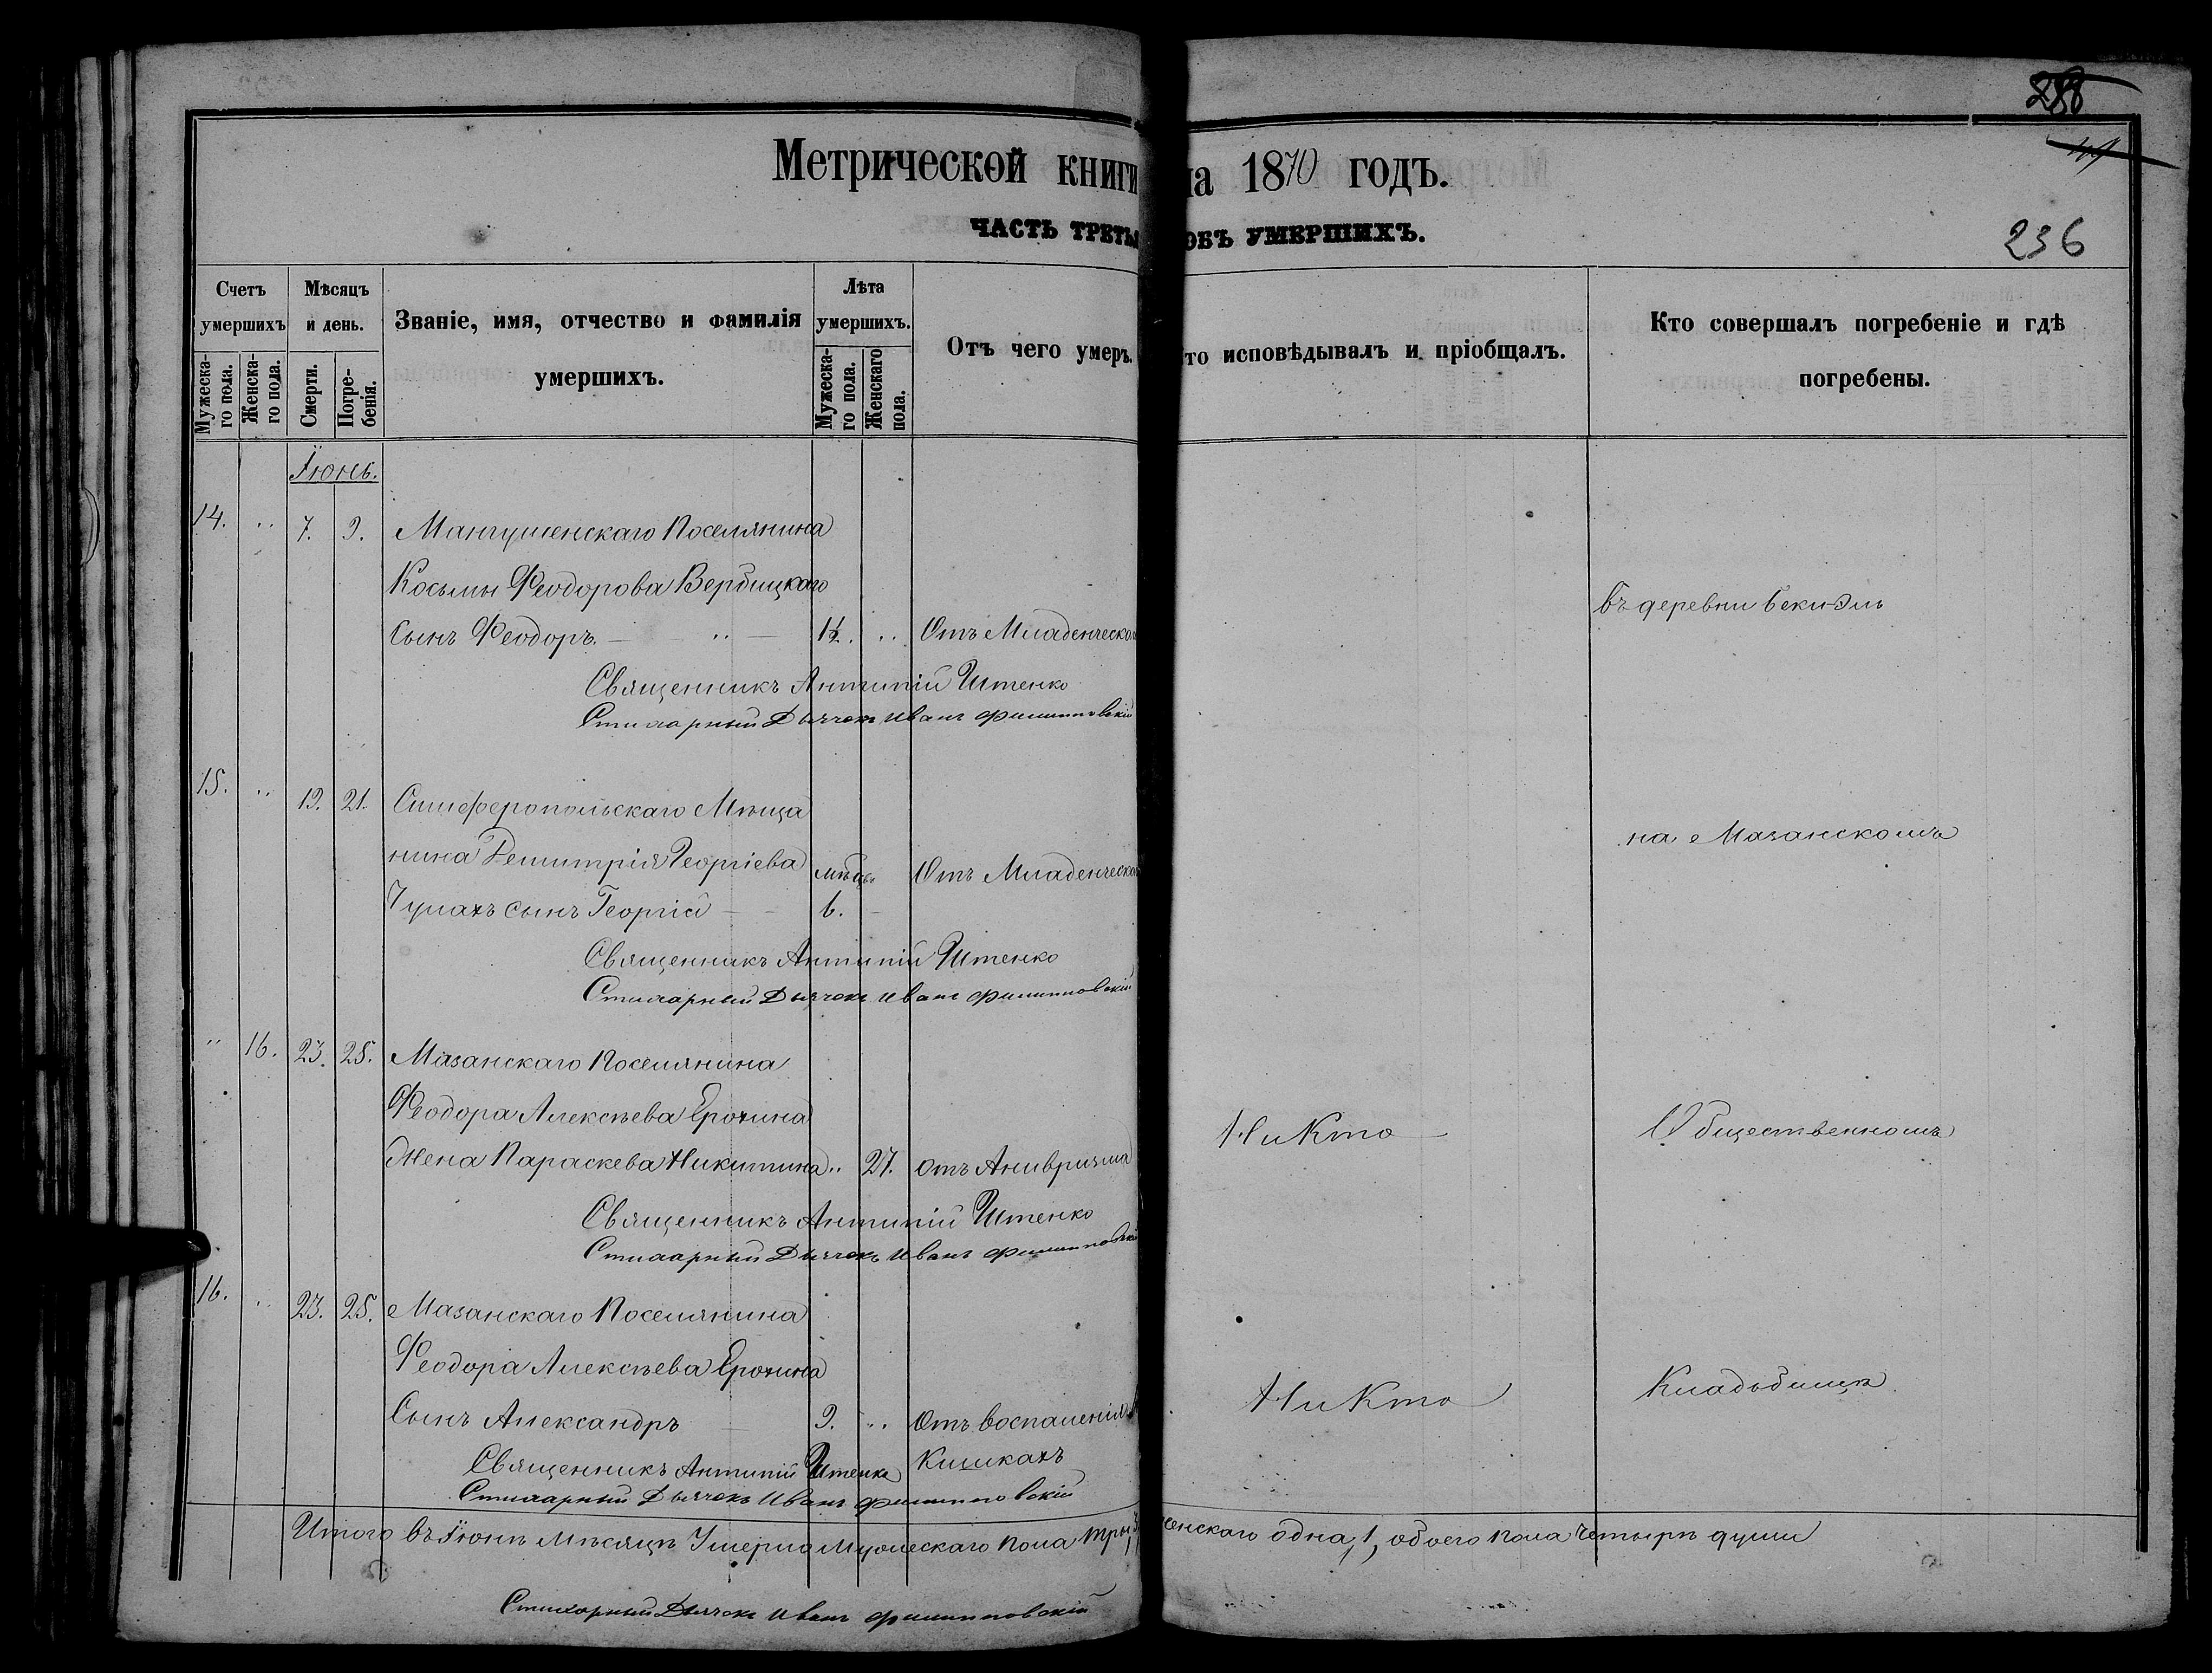 288
236
Метрической книги на 1870 годъ.
ЧАСТЬ ТРЕТЬЯ ОБЪ УМЕРШИХЪ.
Счетъ умершихъ
Мужеска-го пола.
Женска-го пола.
Мѣсяцъ и день.
Смерти.
Погре-бенія.
Званіе, имя, отчество и фамилія
умершихъ.
Лѣта умершихъ.
Мужеска-го пола.
Женскаго пола.
Отъ чего умеръ.
то исповѣдывалъ и пріобщалъ.
Кто совершалъ погребеніе и гдѣ
погребены.
Іюнь.
14. „ 7. 9. Мангушенскаго Поселянина
Косьмы Феодорова Вербицкаго
Сынъ Феодоръ. — „ — 1½. „ Отъ Младенческой
въ деревни Беки-Эли
Священникъ Антипій Штенко
Стихарный Дьячекъ Иванъ Филипповскій
15. „ 19. 21. Симферопольскаго Мѣща
нина Димитрія Георгіева мѣсц. Отъ Младенческой
Чумахъ сынъ Георгій — — 6. —
на Мазанскомъ
Священникъ Антипій Штенко
Стихарный Дьячекъ Иванъ Филипповскій
„ 16. 23. 25. Мазанскаго Поселянина
Феодора Алексѣева Ерохина
Жена Параскева Никитина „ 27. отъ Аневризма
Никто —
Общественномъ
Священникъ Антипій Штенко
Стихарный Дьячекъ Иванъ Филипповскій
16. „ 23. 25. Мазанскаго Поселянина
Феодора Алексѣева Ерохина
Сынъ Александръ — 9. „ Отъ воспаленія
Кишкахъ
Никто
Кладьбищѣ
Священникъ Антипій Штенко
Стихарный Дьячекъ Иванъ Филипповскій
Итого въ Іюнѣ Мѣсяцѣ Умерло Мужескаго пола три, женскаго одна, 1, обоего пола Четырѣ души
Стихарный Дьячекъ Иванъ Филипповскій